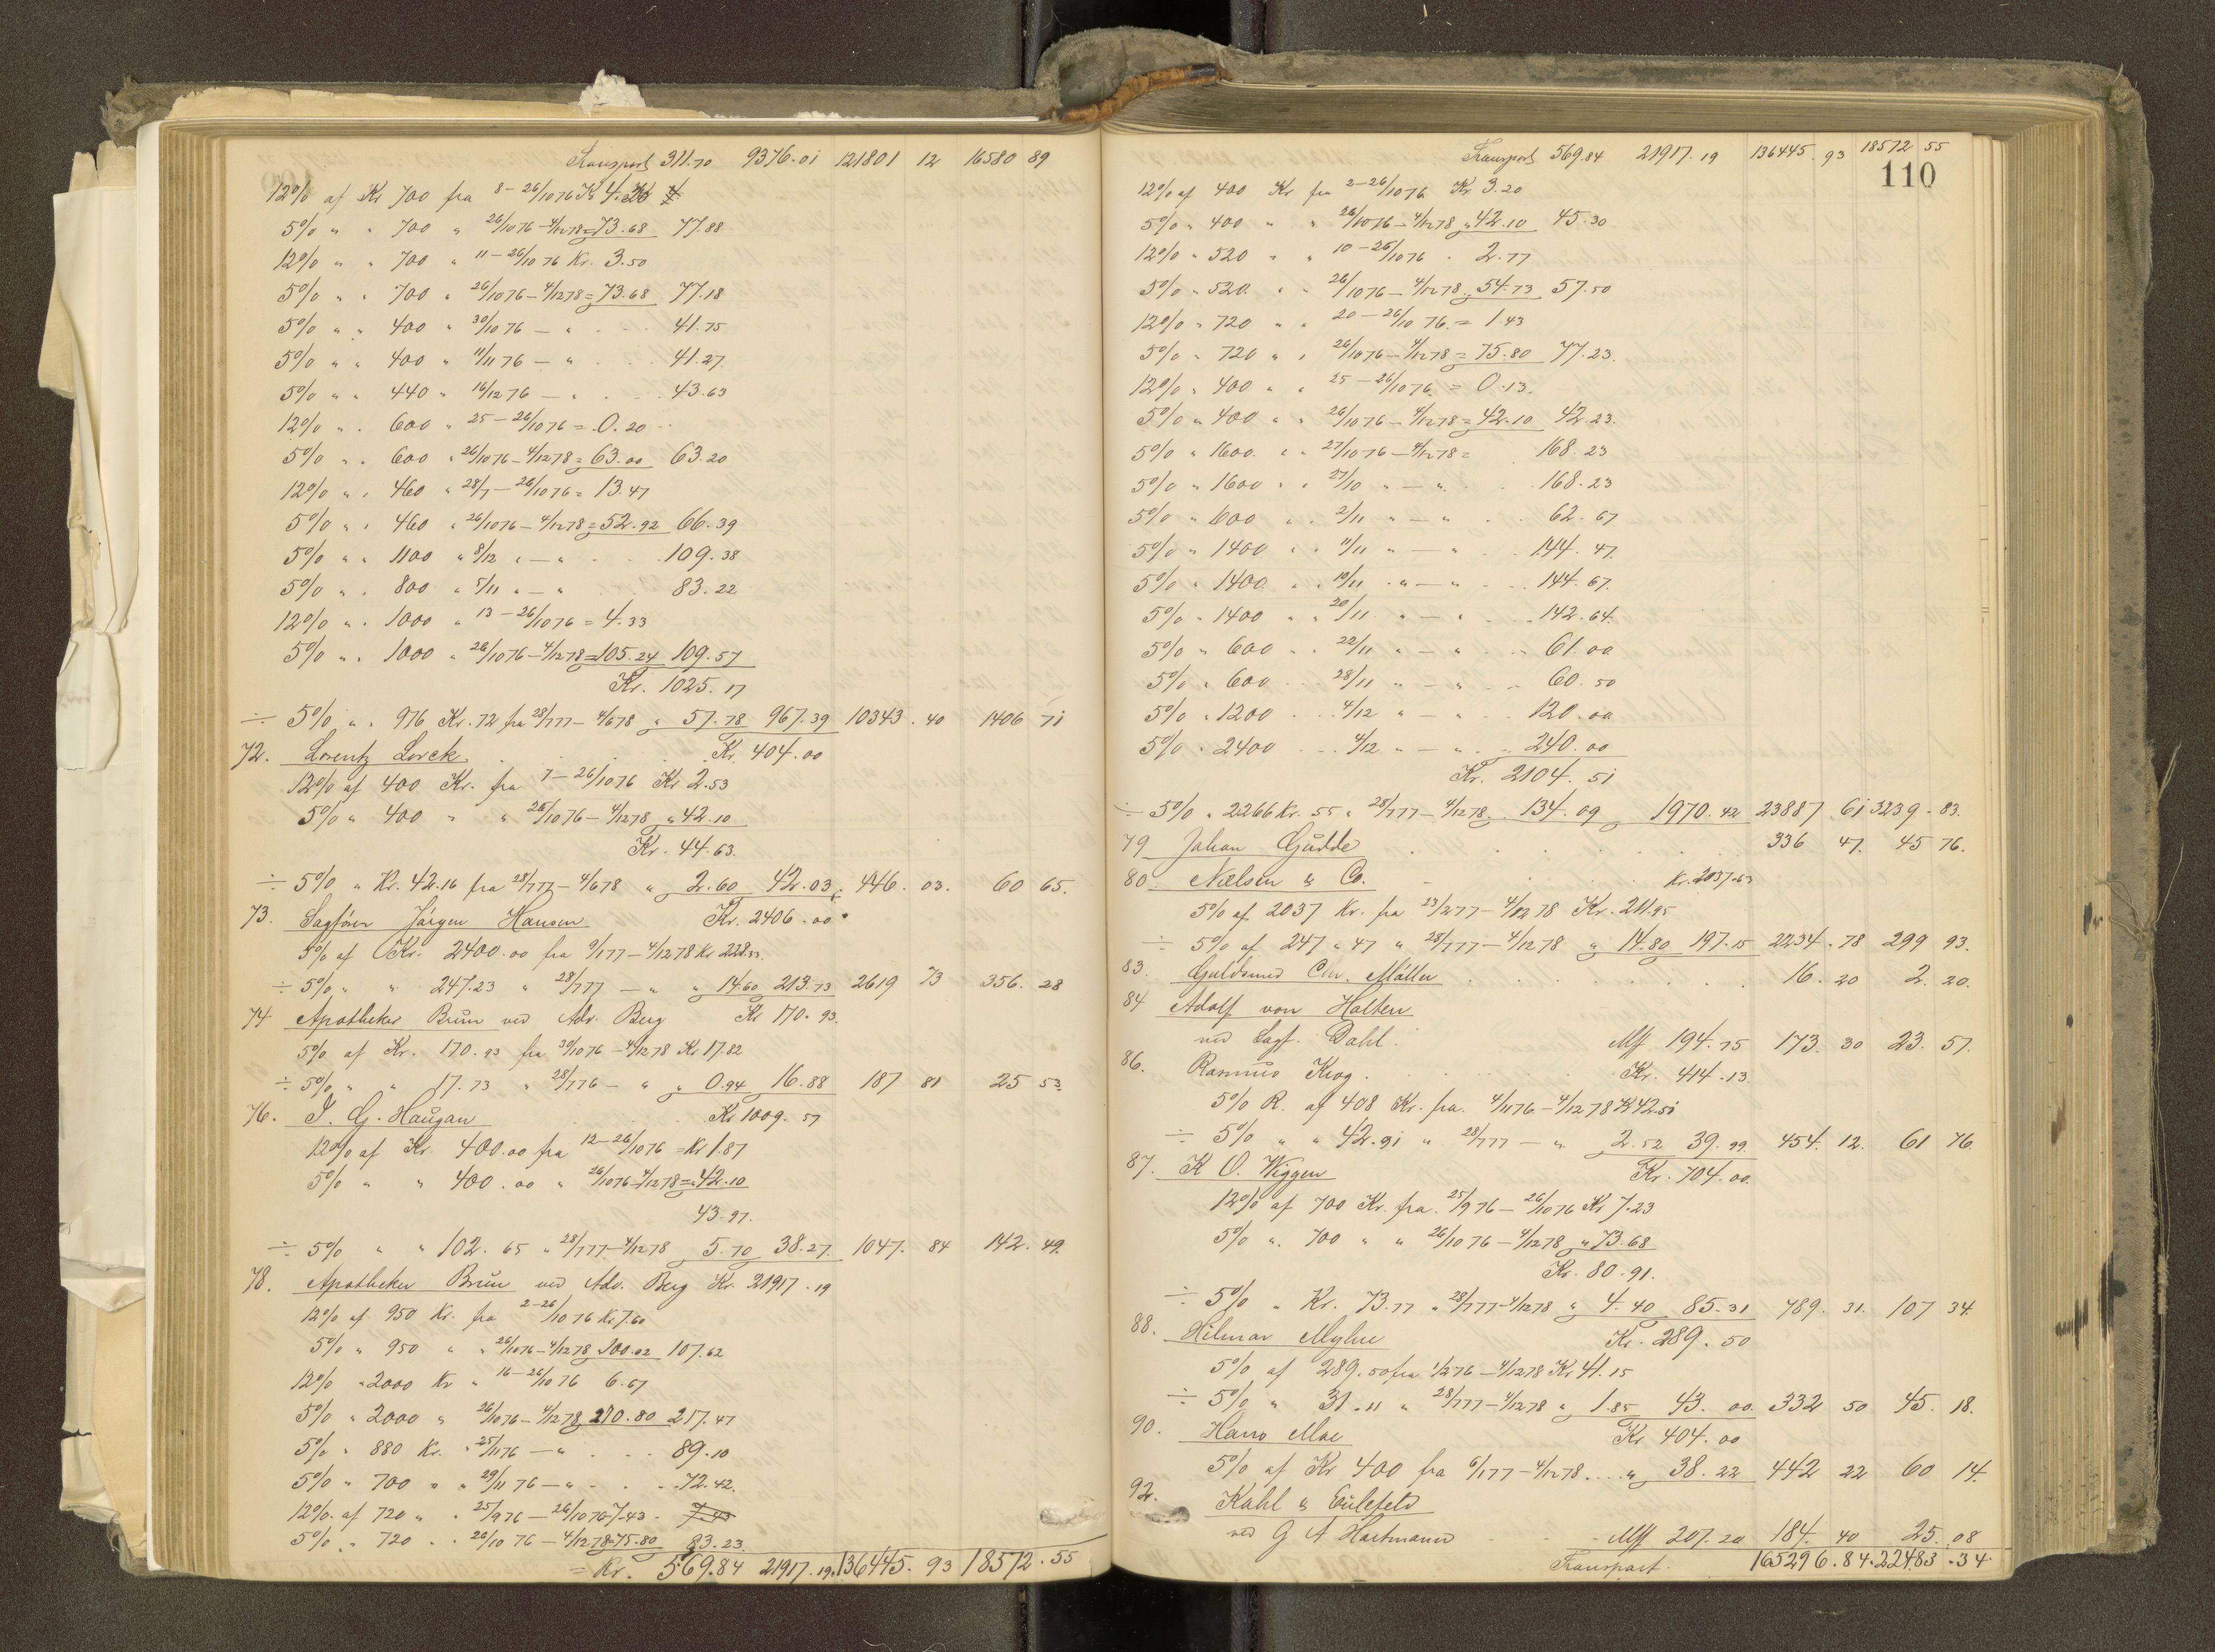 Transport 311.70 9376.01 121801 12 16580 89
12% af Kr 700 fra 8-26/10 76 Kr 4.20
5% " " 700 " 26/10 76-4/12 78 = 73.68 77.88
12% " " 700 " 11-26/10 76 Kr. 3.50
5% " " 700 " 26/10 76-4/12 78 = 73.68 77.18
5% " " 400 " 30/10 76 - " 41.75
5% " " 400 " 11/11 76 - " 41.27
5% " " 440 " 16/12 76 - " 43.63
12% " " 600 " 25-26/10 76 = 0.20
5% " " 600 " 26/10 76-4/12 78 = 63.00 63.20
12% " " 460 " 28/7-26/10 76 = 13.47
5% " " 460 " 26/10 76-4/12 78 = 52.92 66.39
5% " " 1100 " 8/12 " - " 109.38
5% " " 800 " 5/11 " - " 83.22
12% " " 1000 " 13-26/10 76 = 4.33
5% " " 1000 " 26/10 76-4/12 78 = 105.24 109.57
Kr. 1025.17
÷ 5% " " 976 Kr. 72 fra 28/9 77-4/6 78 " 57.78 967.39 10343.40 1406 71
72. Lorentz Lorck Kr. 404.00
12% af 400 Kr. fra 7-26/10 76 Kr 2.53
5% " 400 " " 26/10 76-4/12 78 " 42.10
Kr. 44.63.
÷ 5% " Kr. 42.16 fra 28/9 77-4/6 78 " 2.60 42.03 446.03. 60 65.
73. Sagfører Jørgen Hansen Kr. 2406.00
5% af Kr. 2400.00 fra 9/1 77-4/12 78 Kr 228.33
÷ 5% " " 247.23 " 28/9 77 - " " 14.60 213.73 2619 73 356.28
74 Apotheker Brun ved Adv. Berg Kr 170.93.
5% af Kr. 170.93 fra 30/10 76-4/12 78 Kr 17.82
÷ 5% " " 17.73 " 28/7 76 - " " 0.94 16.88 187 81 25 53.
76. I. G. Haugan Kr 1009.57
12% af Kr 400.00 fra 12-26/10 76 = Kr 1.87
5% " " 400.00 " 26/10 76-4/12 78 = " 42.10
43.97.
÷ 5% " " 102.65 " 28/7 77-4/12 78 5.70 38.27. 1047.84 142.49.
78. Apotheker Brun ved Adv. Berg Kr. 21917.19
12% af 950 Kr. fra 2-26/10 76 Kr 7.60
5% " 950 " " 26/10 76-4/12 78 100.02 107.62
12% " 2000 Kr " 16-26/10 76 6.67
5% " 2000 " 26/10 76-4/12 78 210.80 217.47
5% " 880 Kr. " 25/11 76 - " 89.10
5% " 700 " " 29/11 76 - " 72.42.
12% af 720 " " 25/9 76-26/10 76 7.43 - 7.43
5% " 720 " " 26/10 76-4/12 78 75.80 83.23
= Kr. 569.84 21917.19. 136445.93 18572.55
Transport 569.84 21917.19 136445.93 18572 55
110
12% af 400 Kr fra 2-26/10 76 Kr 3.20
5% " 400 " " 26/10 76-4/12 78 " 42.10 45.30
12% " 520 " " 10-26/10 76 " 2.77
5% " 520. " " 26/10 76-4/12 78 " 54.73 57.50
12% " 720 " " 20-26/10 76. = 1.43
5% " 720 " " 26/10 76-4/12 78 = 75.80 77.23.
12% " 400 " " 25-26/10 76 = 0.13.
5% " 400 " " 26/10 76-4/12 78 = 42.10 42.23.
5% " 1600. " " 27/10 76-4/12 78 = 168.23
5% " 1600 " " 27/10 " - " 168.23
5% " 600 " " 2/11 " - " 62.67
5% " 1400 " " 11/11 " - " 144.47.
5% " 1400. " " 10/11 " - " 144.67.
5% " 1400 " " 20/11 " - " 142.64.
5% " 600 " " 22/11 " - " 61.00
5% " 600 28/11 " - " 60.50
5% " 1200 4/12 " - " 120.00
5% " 2400 4/12 " - " 240.00
Kr. 2104.51
÷ 5% " 2266 Kr. 55 " 28/7 77-4/12 78 134.09 1970.42 23887.61 3239.83.
79 Johan Gudde 336 47. 45 76.
80. Nielsen & Co. Kr. 2037.63
5% af 2037 Kr. fra 23/2 77-4/12 78 Kr. 211.95
÷ 5% af 247 " 47 " 28/7 77-4/12 78 " 14.80 197.15 2234.78 299 93.
83. Guldsmed Chr. Møller 16.20 2.20.
84 Adolf von Halten
ved Sagf. Dahl. Mk 194.75 173.30 23.57.
86. Rasmus Krog. Kr. 414.13.
5% R. af 408 Kr. fra. 4/11 76-4/12 78 Kr 42.51
÷ 5% " " 42.91 " 28/7 77 - " 2.52 39.99 454.12. 61 76.
87. K O. Wiggen Kr. 704.00.
12% af 700 Kr. fra. 25/9 76-26/10 76 Kr 7.23
5% " 700 " " 26/10 76-4/12 78 " 73.68
Kr. 80.91.
÷ 5% " Kr. 73.77 " 28/7 77-4/12 78 " 4.40 85.31 789.31. 107 34.
88. Hilmar Mylne Kr. 289.50
5% af 289.50 fra 1/2 76-4/12 78 Kr 41.15
÷ 5% " 31.11 " 28/7 77-4/12 78 " 1.85 43.00. 332 50 45.18.
90. Hans Moe Kr 404.00
5% af Kr 400 fra 6/1 77-4/12 78 " 38.22 442 22 60 14.
92. Kahl & Eulefeld
ved G A Hartmann Mk 207.20 184.40 25.08
Transport. 165296.84. 22483.34